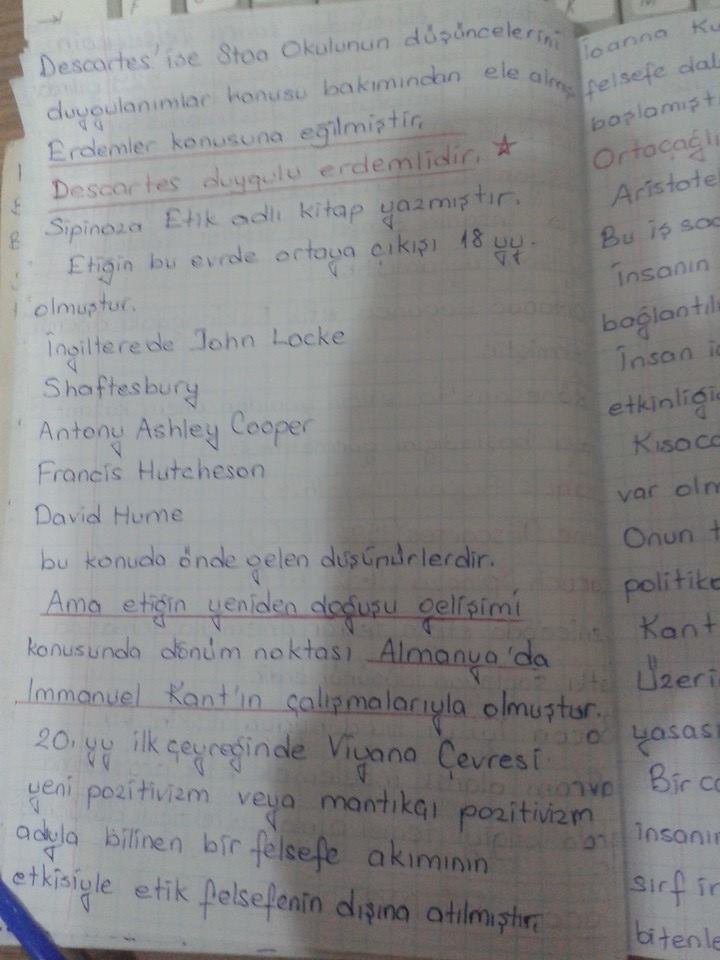 Descartes' ise Stoa Okulunun düşüncelerini
duygulanımlar konusu bakımından ele almış
Erdemler konusuna eğilmiştir.
Descartes duygulu erdemlidir. ☆
Sipinoza Etik adlı kitap yazmıştır.
Etiğin bu evrde ortaya çıkışı 18 yy.
olmuştur.
İngilterede John Locke
Shaftesbury
Antony Ashley Cooper
Francis Hutcheson
David Hume
bu konuda önde gelen düşünürlerdir.
Ama etiğin yeniden doğuşu gelişimi
konusunda dönüm noktası Almanya'da
Immanuel Kant'ın çalışmalarıyla olmuştur.
20. yy ilk çeyreğinde Viyana Çevresi
yeni pozitivizm veya mantıkçı pozitivizm
adyla bilinen bir felsefe akımının
etkisiyle etik felsefenin dışına atılmıştır.
ioanna Ku
felsefe dal
başlamışt
Ortaçağlı
Aristotel
Bu iş
İnsanın
bağlantılı
İnsan
etkinliği
Kısaca
var olm
Onun
politik
Kant
Üzeri
yasası
Bir
insanın
sırf
bitenle